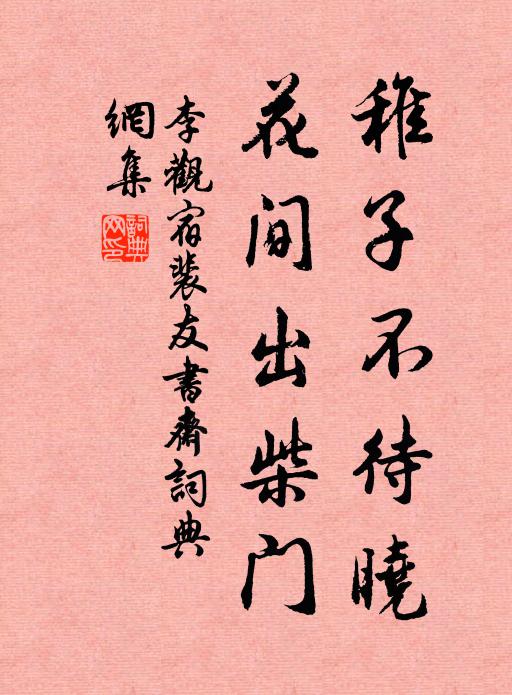 稚子不待曉
花间出柴门
李觀宿裴友書齋詞典
網集
詞典网印